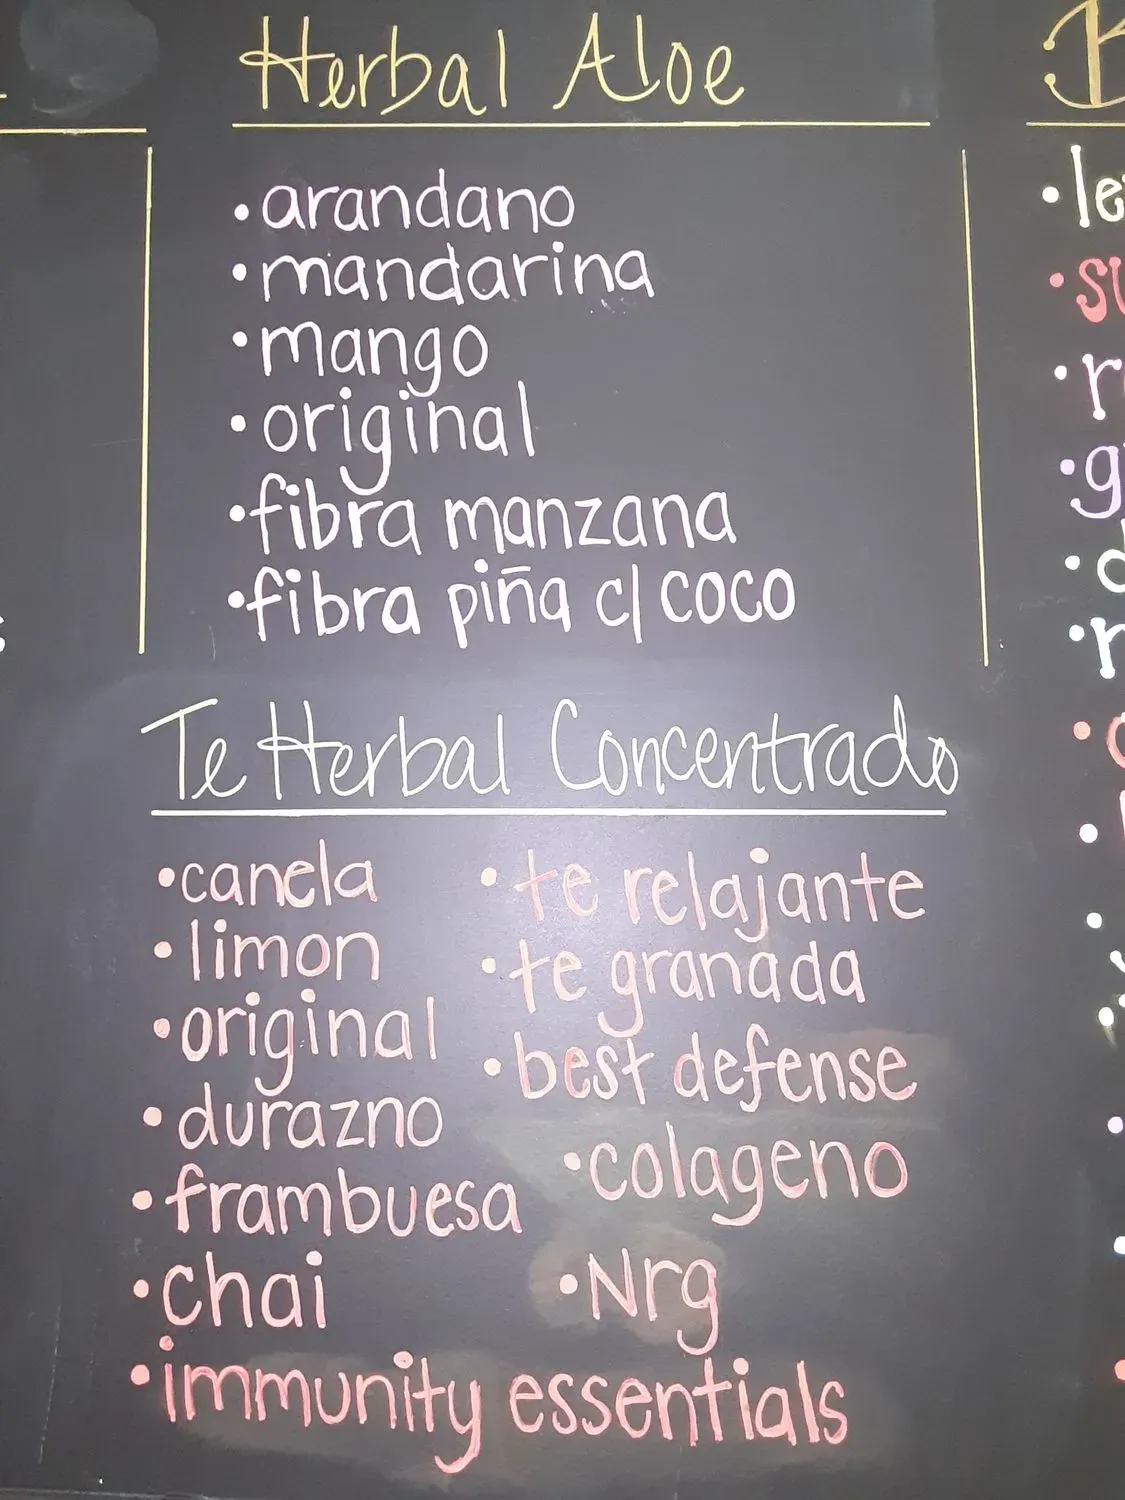 Herbal Aloe
• arandano
• mandarina
• mango
• original
• fibra manzana
• fibra piña c/ coco
Te Herbal Concentrado
• canela
• limon
• original
• durazno
• frambuesa
• chai
• immunity essentials
• te relajante
• te granada
• best defense
• colageno
• Nrg